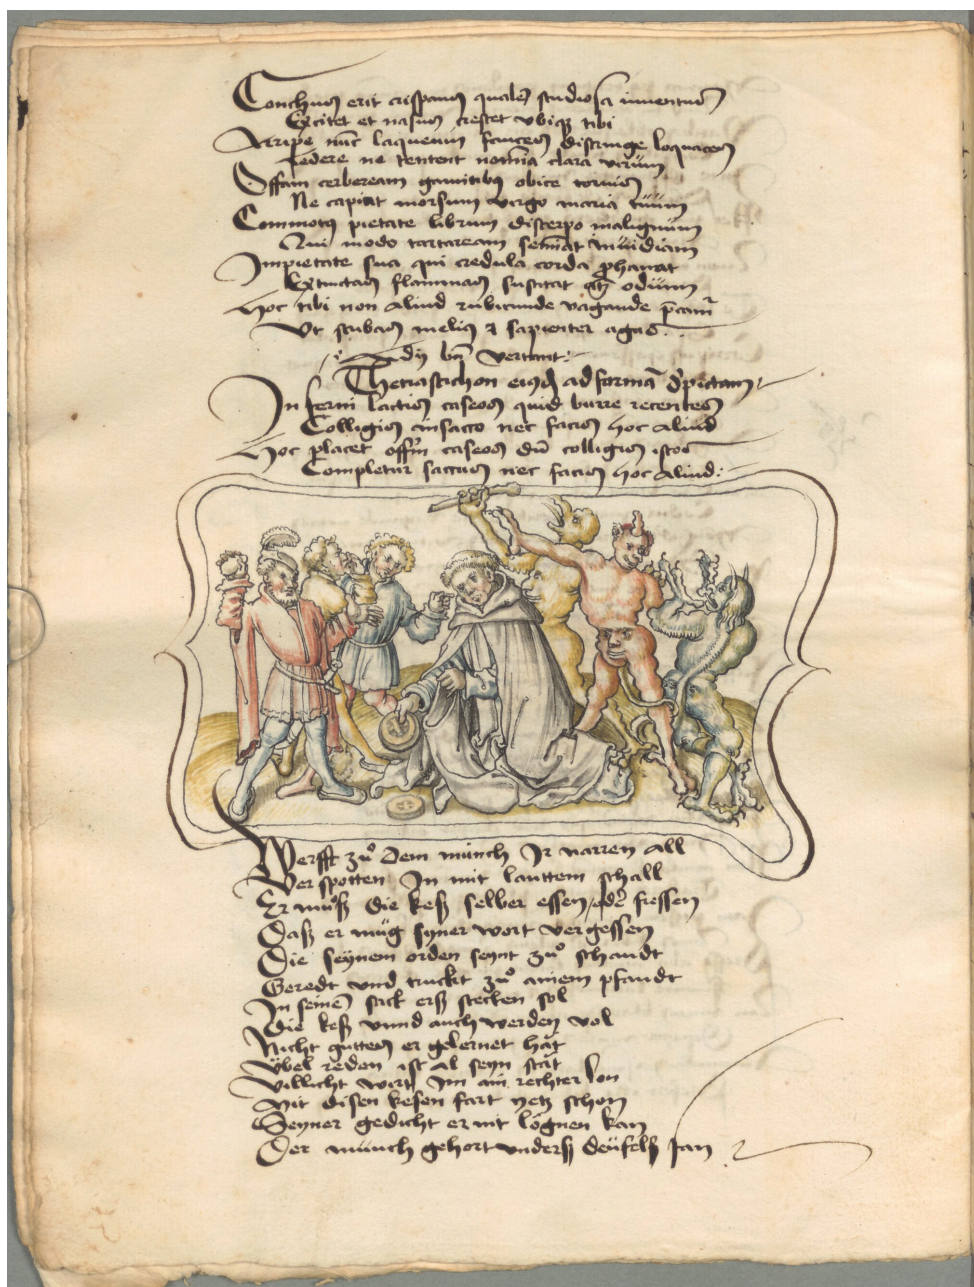 Conchus erit crispans quales studiosa iuventus
Excitet et nasus crescet ubiqz tibi
Arripe nūc laqueum fauces distringe loquaces
Ledere ne tentent nomina clara virum
Offam cerbeream gannitibus obice torvis
Ne capiat morsum virgo maria tuum
Commotus pietate librum discerpo malignum
Qui modo tartaream seminat invidiam
Impietate sua qui credula corda prhanat
Extinctas flammas suscitat atq odium
Hoc tibi non aliud rubicunde vagande
Ut scribas melius et sapienter agas
dij bn̄ vertant:
Thetrastichon eiusd ad formā depictam
Inferni lactis caseos quid burre recentes
Colligis insacco nec facis hoc aliud
Hoc placet caseos dū colligis istos
Completur saccus nec facis hoc aliud:
Werfft zuͦ dem münch Ir narren all
Verspotten In mit lauttem schall
Er muͦß die keß selber essen / oder fressen
Daß er müg syner wort vergessen
Die seynem orden seynt zuͦ schandt
Geredt und truckt zuͦ ainem pfandt
In seinē sack erß stecken sol
Die keß unnd auch werden vol
Nicht guttes er gelernet hāt
Übel reden ist al seyn stāt
Villicht wirt Im ain rechter lon
Mit disen kesen fart yetz schon
Seyner gedicht er nit lögnen kan
Der münch gehort underß deüfelß fan